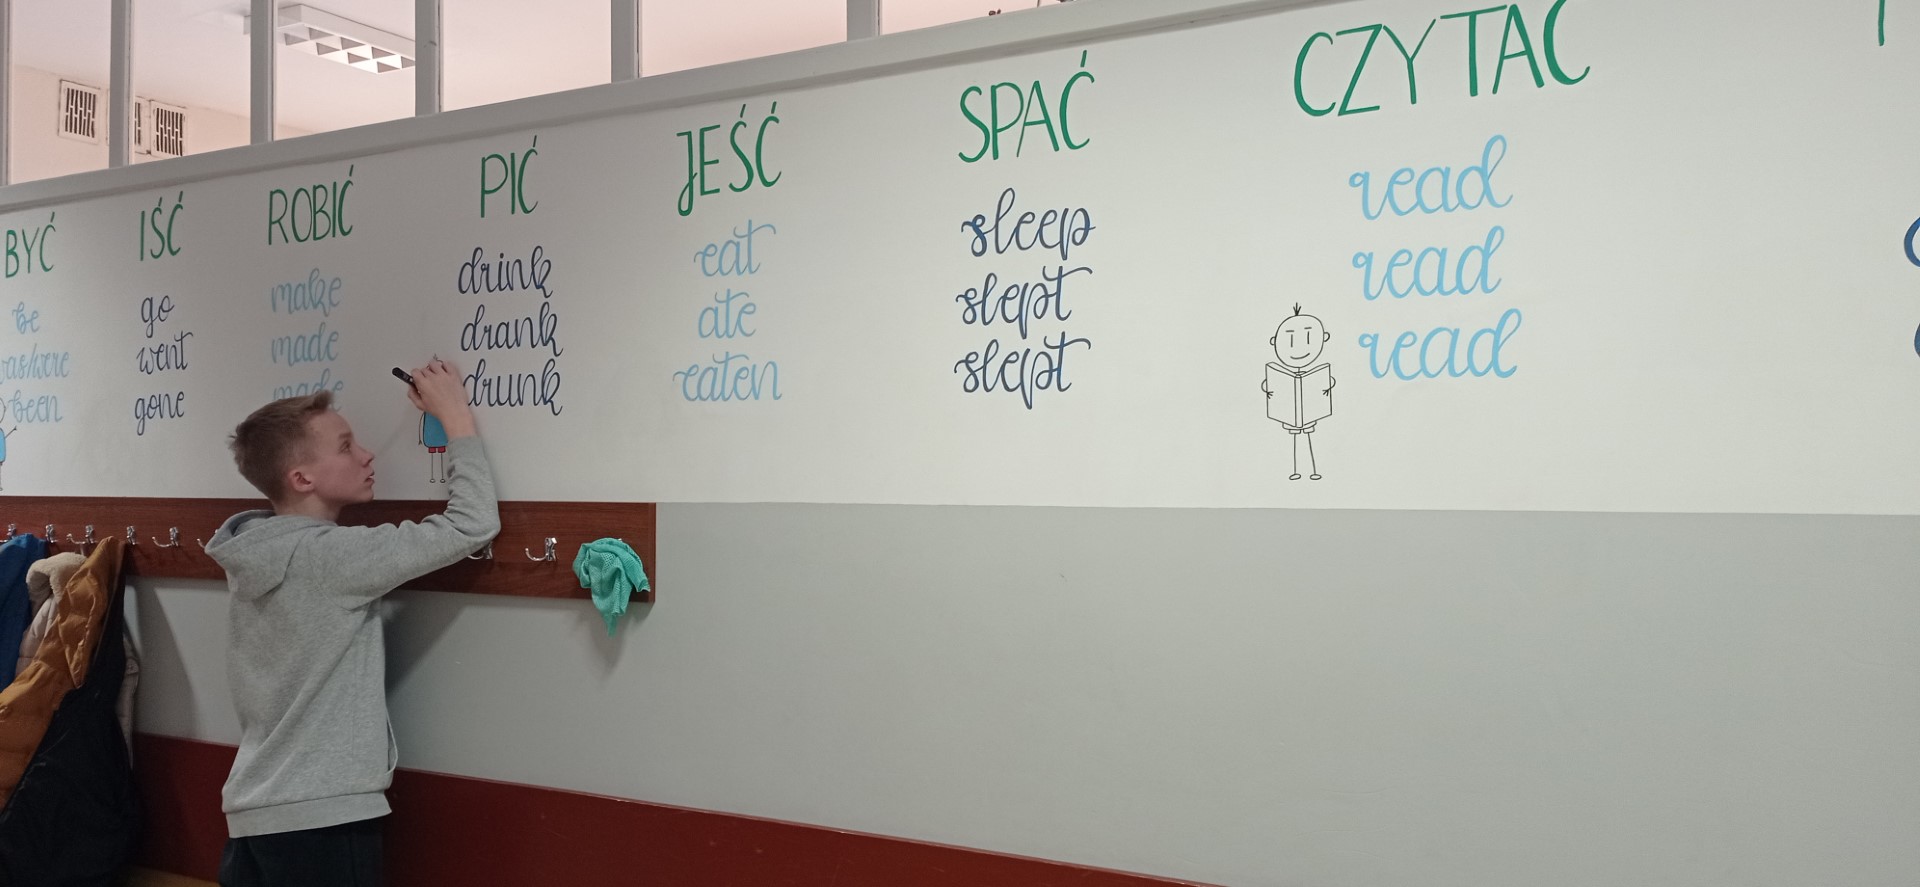 BYĆ
be
was/were
been
IŚĆ
go
went
gone
ROBIĆ
make
made
made
PIĆ
drink
drank
drunk
JEŚĆ
eat
ate
eaten
SPAĆ
sleep
slept
slept
CZYTAĆ
read
read
read